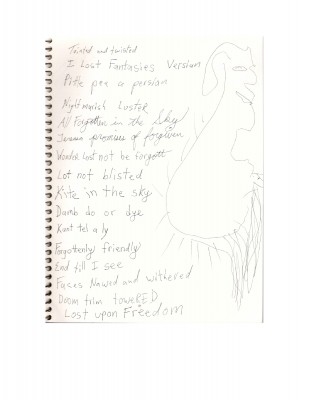 Tainted and twisted
I Lost Fantasies Version
pee a persian
Nightmarish Luster
All Forgotten in the Sky
promises of forgiven
Lost not be forgott
Lot not blisted
Kite in the sky
Dumb do or dye
Kunt tel a ly
Forgottenly friendly
End till I see
Faces Nawed and withered
Doom trim toweRED
Lost upon Freedom